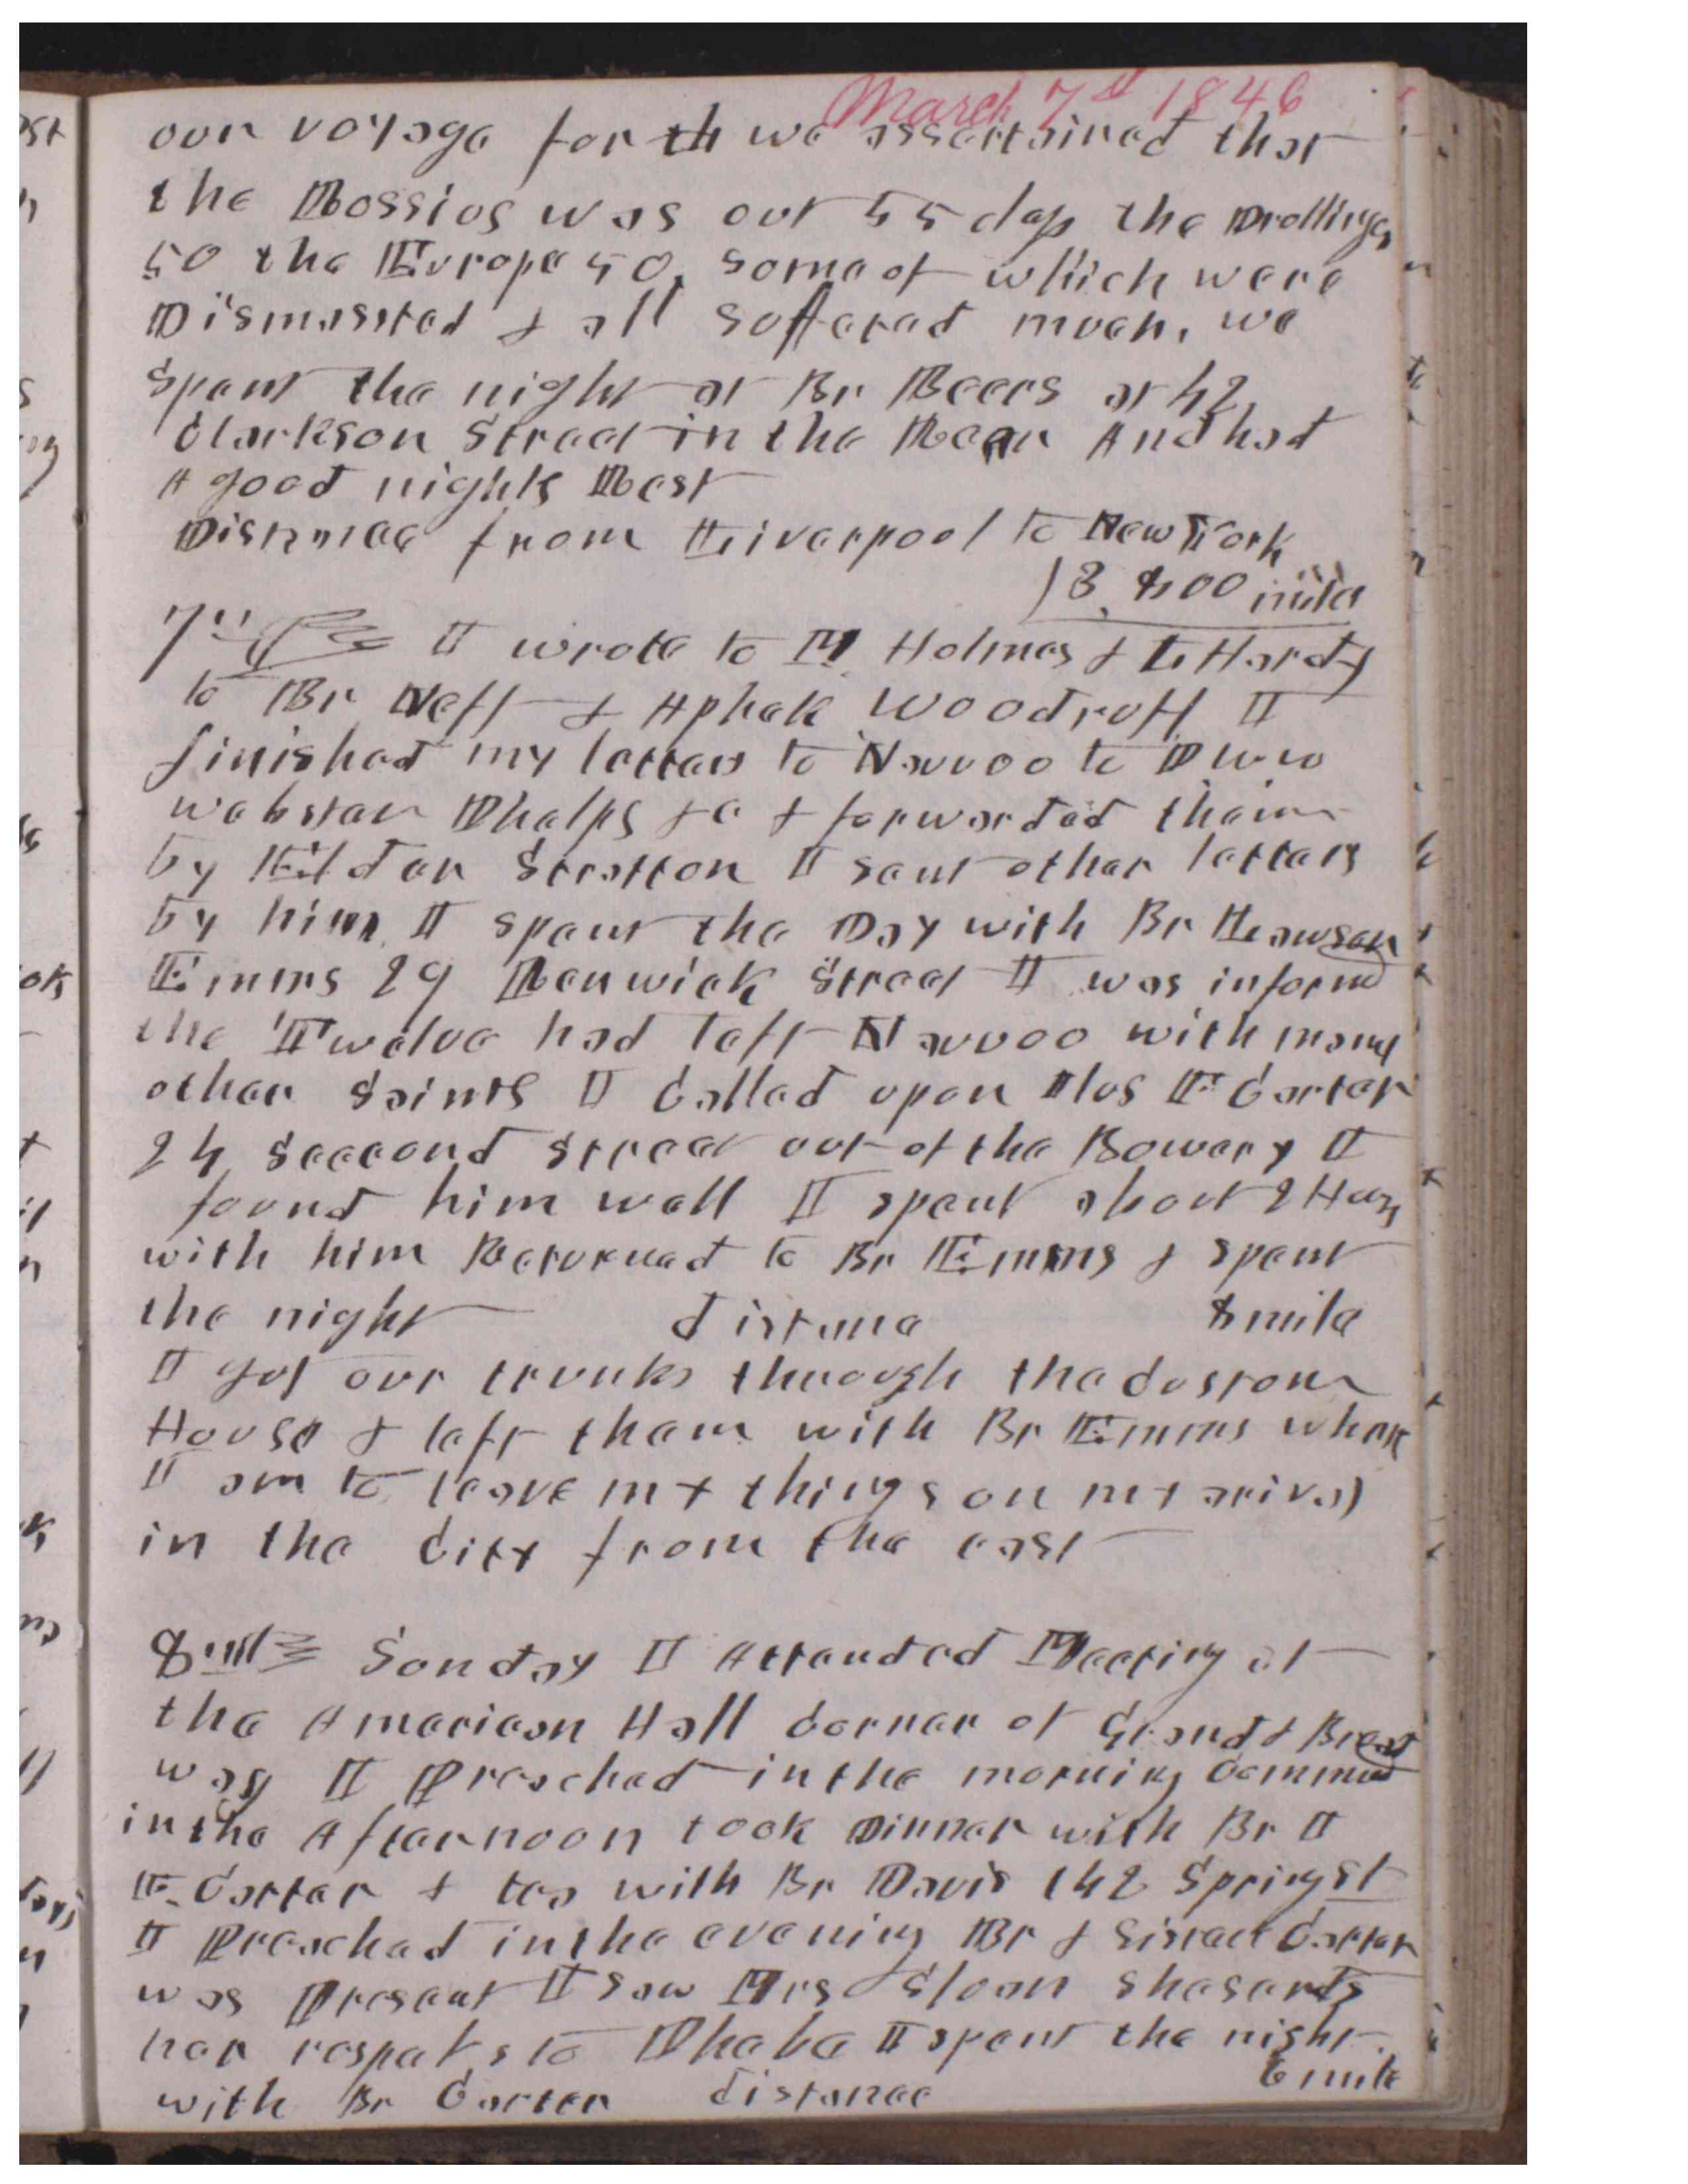 March 7th 1846
our voyage for th we assertained that
the Rossios was out 55 days the
50 the Europe 50, some of which were
Dismassted & all suffered much, we
spent the night at Br Beers at 42
Clarkson Street in the Rear And had
A good nights Rest
Distance from Liverpool to New York
miles
7th I wrote to M Holmes & L Hardy
to Br Neff & Aphek Woodruff I
finished my letters to Nauvoo to
Webster Phelps &c & forwarded them
by Elder Stratton I sent other letters
by him I spent the Day with Br
Emms 29 Renwick Street I was informd
the Twelve had left Nauvoo with many
other Saints I Called upon E Carter
24 Seccond Street out of the Bowery I
found him well I spent about 2 Hours
with him Returned to Br Emms & spent
the night distance 8 mile
I got our trunks through the Custom
House & left them with Br Emms whare
I am to leave my things on my arival
in the City from the east
8th Sunday I Attended Meeting at
the American Hall Corner of Grand & Broad
way I Preached in the morning Commund
in the Afternoon took Dinner with Br I
F. Carter & tea with Br Davis 142 Spring st
I Preached in the evening Br & Sister Carter
was Present I saw Mrs Sloan she sends
her respects to Phebe I spent the night
with Br Carter distance 6 mile